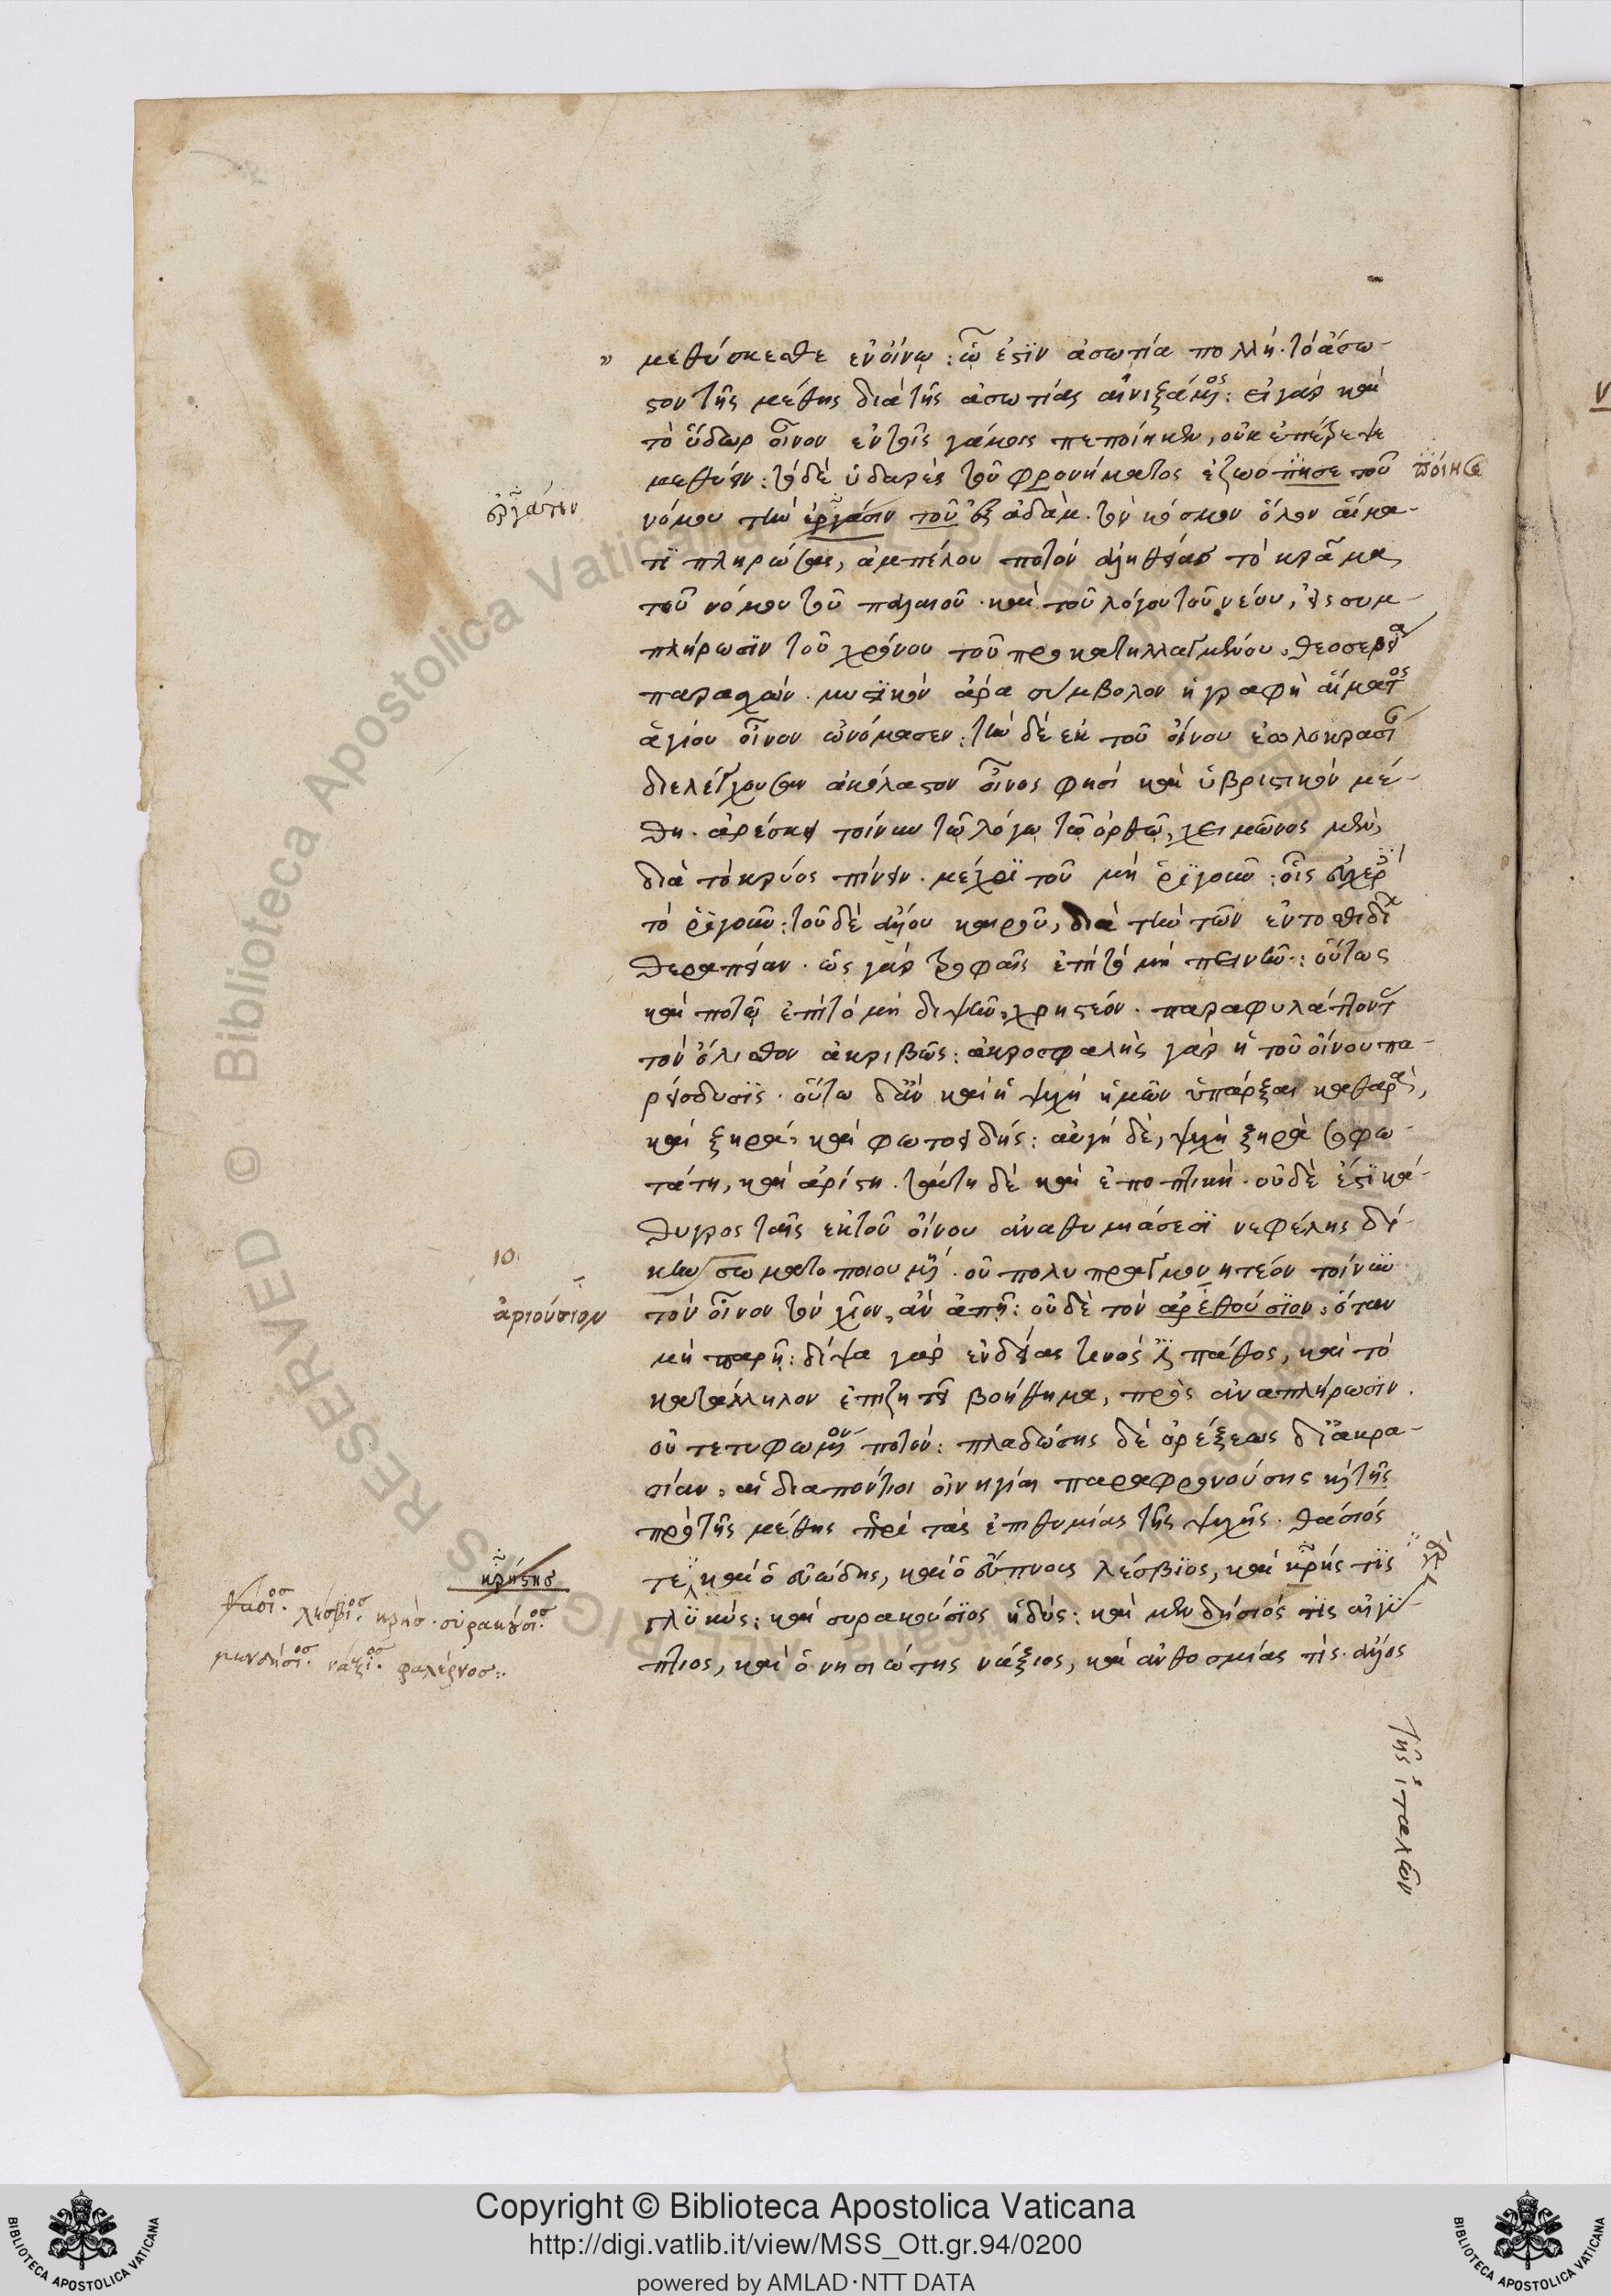 μεθύσκεσθε ἐν οἴνῳ: ᾧ ἐστὶν ἀσωτία πολλή. τὸ ἄσω-
στον τῆς μέθης διὰ τῆς ἀσωτίας αἰνιξάμενος: εἰ γὰρ καὶ
τὸ ὕδωρ οἶνον ἐν τοῖς γάμοις πεποίηκεν, οὐκ ἐπέτρεψε
μεθύειν: τὸ δὲ ὑδαρὲς τοῦ φρονήματος ἐζωοπίησε τοῦ
ποίησε
ἐργάτην
νόμου τὴν ἐργάσιν τοῦ ἐξ ἀδάμ. τὸν κόσμον ὅλον αἵμα-
τι πληρώσας, ἀμπέλου ποτὸν ἀληθείας τὸ κρᾶμα
τοῦ νόμου τοῦ παλαιοῦ. καὶ τοῦ λόγου τοῦ νέου, εἰς συμ-
πλήρωσιν τοῦ χρόνου τοῦ προκατηλλαγμένου. θεοσεβεία
παρασχών. μυστικὸν ἄρα σύμβολον ἡ γραφὴ αἵματος
ἁγίου οἶνον ὠνόμασεν: τὴν δὲ ἐκ τοῦ οἴνου ἑωλοκρασί
διελέγχουσαν ἀκόλαστον οἶνος φησὶ καὶ ὑβριστικὸν μέ-
θη. ἀρέσκει τοίνυν τῷ λόγῳ τῷ ὀρθῷ, χειμῶνος μὲν,
διὰ τὸ κρύος πίνειν. μέχρι τοῦ μὴ ῥιγοῦν: οἷς εὐχερ
τὸ ῥιγοῦν: τοῦ δὲ ἄλλου καιροῦ, διὰ τὴν τῶν ἐντοσθιδί
θεραπείαν. ὡς γὰρ τροφαῖς ἐπὶ τὸ μὴ πεινῶν: οὕτως
καὶ ποτῷ ἐπὶ τὸ μὴ διψῶν χρηστέον. παραφυλάττοντ
τὸν ὄλισθον ἀκριβῶς: ἀκροσφαλὴς γὰρ ἡ τοῦ οἴνου πα-
ρείσδυσις. οὕτω δ' ἂν καὶ ἡ ψυχὴ ἡμῶν ὑπάρξαι καθαρὰ,
καὶ ξηρὰ, καὶ φωτοειδής: αὐγὴ δὲ, ψυχὴ ξηρὰ σοφω-
τάτη, καὶ ἀρίστη. ταύτη δὲ καὶ ἐποπτική. οὐδὲ ἐστὶ κά-
θυγρος ταῖς ἐκ τοῦ οἴνου ἀναθυμιάσεσι νεφέλης δί-
κην σωματοποιουμεν. οὐ πολυπραγμονητέον τοίνυν
10
ἀριούσιον
τὸν οἶνον τὸν χῖον, ἂν ἀπῇ: οὐδὲ τὸν ἀρεθούσιον. ὅταν
μὴ παρῇ: δίψα γὰρ ἐνδείας τινός ἐστι πάθος, καὶ τὸ
κατάλληλον ἐπιζητεῖ βοήθημα, πρὸς ἀναπλήρωσιν.
οὐ τετυφωμένον ποτόν: πλαδώσης δὲ ὀρέξεως δι' ἀκρα-
σίαν, αἱ διαπόντιοι οἰνηγίαι παραφρονούσης καὶ τῆς
πρὸ τῆς μέθης περὶ τὰς ἐπιθυμίας τῆς ψυχῆς. θάσιός
τε καὶ ὁ εὐώδης, καὶ ὁ εὔπνους λέσβιος, καὶ κρής τις
γλυκύς: καὶ συρακούσιος ἡδύς: καὶ μενδήσιός τις αἰγύ-
πτιος, καὶ ὁ νησιώτης νάξιος, καὶ ἀνθοσμίας τίς. ἄλλος
κρήτης
θάσιος. λέσβιος. κρὴσ. συρακούσιος.
μενδήσιος. νάξιος. φαλέρνοσ:
τῆς ἰταλῶν
Copyright © Biblioteca Apostolica Vaticana
http://digi.vatlib.it/view/MSS_Ott.gr.94/0200
powered by AMLAD·NTT DATA
BIBLIOTECA APOSTOLICA VATICANA
BIBLIOTECA APOSTOLICA VATICANA
© Biblioteca Apostolica Vaticana
ALL RIGHTS RESERVED